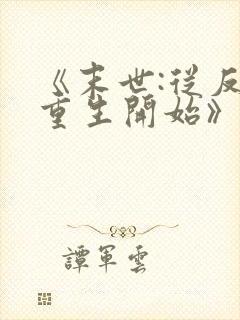 《末世:從反
重生開始》
譚軍雲